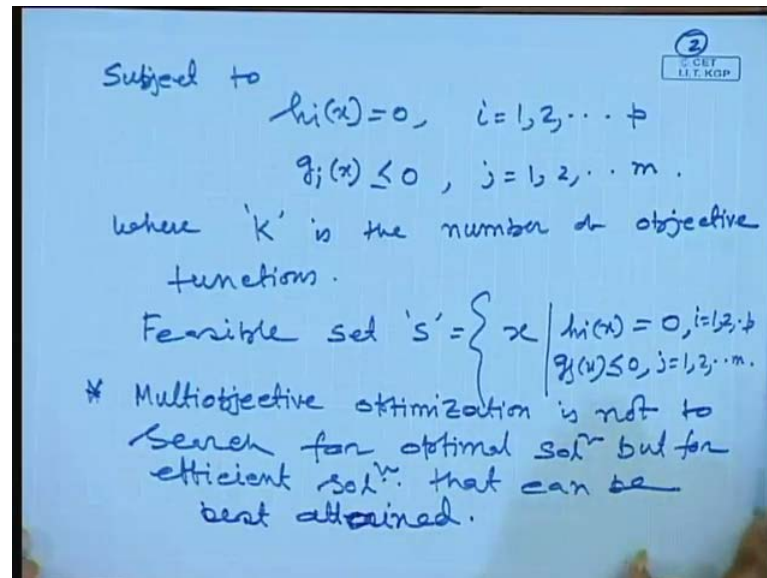 2
© CET
I.I.T. KGP
Subject to
hi(x)=0, i=1,2,... p
gj(x) ≤ 0, j=1,2,.. m.
where 'K' is the number of objective
functions.
Feasible set 's' = { x | hi(x) = 0, i=1,2,.p
gj(x) ≤ 0, j=1,2,..m.
* Multiobjective optimization is not to
search for optimal solⁿ but for
efficient solⁿ. that can be
best attained.